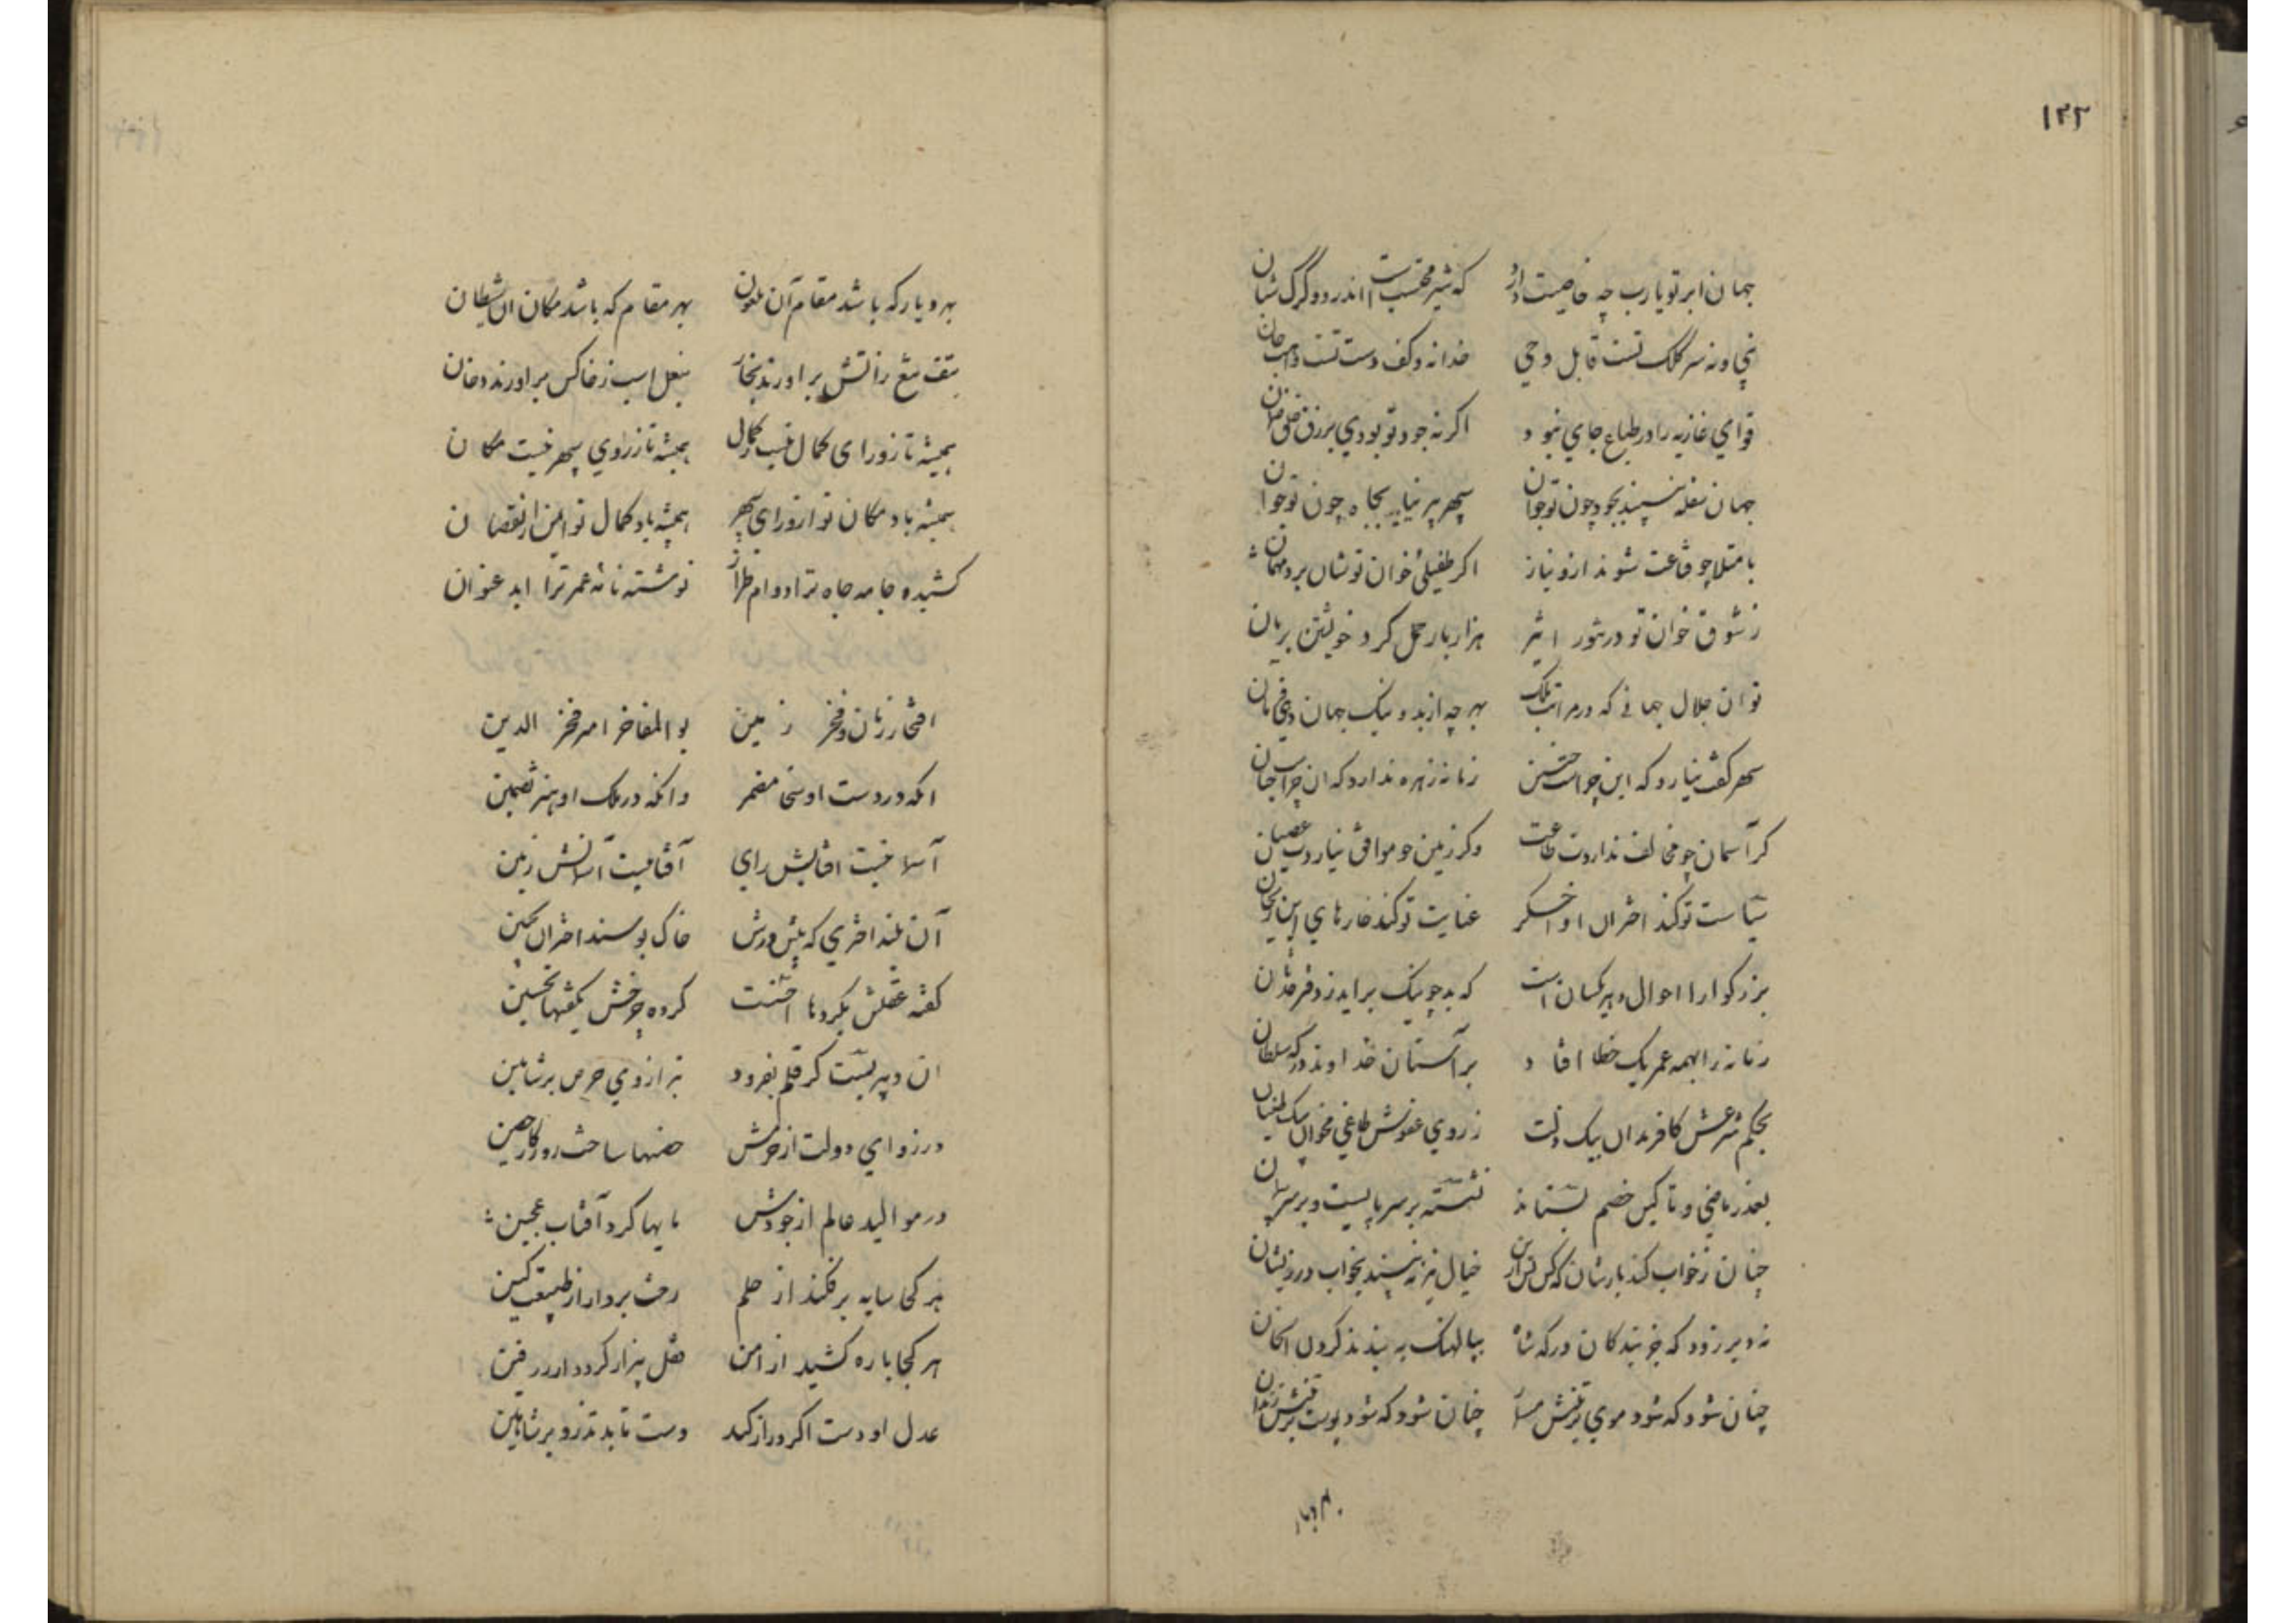 ۱۲۲
جهان ابر تو یارب چه خاصیت دارد که شیر محتسب است اندرو و گرگ شبان
نی او نه سر کلک تست قابل وحی خدا نه و کف دست تست واهب جان
قوای غاذیه را در طباع جای نبود اگر نه جود تو بودی برزق خلق ضمان
جهان سفله نبیند بجود چون تو جوان سپهر پیر نیابد بجاه چون تو جوان
بامتلا چو قناعت شوند ازو نیاز اگر طفیلئ خوان تو شان برد مهمان
ز شوق خوان تو در ثور اثیر هزار بار حمل کرد خویشتن بریان
تو ان جلال جهانی که در مراتب ملک بهر چه از بد و نیک جهان دهی فرمان
سپهر گفت نیارد که این چراست چنین زمانه زهره ندارد که ان چراست چنان
گر آسمان چو مخالف نداردت طاعت وگر زمین چو موافق نیاردت عصیان
سیاست تو کند اختران او اخگر عنایت تو کند خارهای این ریحان
بزرگوارا احوال دهر یکسان نیست که بد چو نیک برآید ز دفتر حدثان
زمانه را بهمه عمر یک خطا افتاد بر آستان خداوند درگه سلطان
بحکم شرعش کافر مدان بیک زلت ز روی عفوش طاغی مخوان بیک طغیان
بعذر ماضی و تاکین خصم بستاند نشسته بر سر پایست و بر سر پیمان
چنان ز خواب کند بازشان که کس پس ازین خیال نیز نبیند بخواب در ز یشان
نه دیر زود که جز بندگان درگه شاه بپالهنگ ببندند گردن اعیان
چنان شود که شود موی بر تنش مسمار چنان شود که شود پوست بر تنش زندان
بهر دیار
بهر دیار که باشد مقام آن ملعون بهر مقام که باشد مکان ان شیطان
بتف تیغ ز آتش براورند بخار بنعل اسب ز خاکش براورند دخان
همیشه تا ز ورای کمال نیست کمال همیشه تا ز زوای سپهر نیست مکان
همیشه باد مکان تو از ورای سپهر همیشه باد کمال تو ایمن از نقصان
کشیده جامه جاه ترا دوام طراز نوشته نامه عمر ترا ابد عنوان
افتخار زمان و فخر زمین بو المفاخر امیر فخر الدین
انکه در دست او سخا مضمر وانکه در کلک او هنر تضمین
آسمانیست آفتابش رای آفتابیست آسمانش زین
آن بلند اختری که پیش درش خاک بوسند اختران بجبین
گفته عقلش بکردها احسنت کرده چرخش بگفتها تحسین
ان دبیریست کز قلم بفزود تیر از وی حرص بر تنین
در زوای دولت از حزمش حصنها ساخت روزگار حصین
در موالید عالم از جودش مایها کرد آفتاب عجین
هر کجا سایه برفکند از حلم رخت بردارد از طبیعت کین
هر کجا باره کشید از امن فتنه بیزار گردد از رفتن
عدل او دست اگر دراز کند دست یابد تذرو بر شاهین